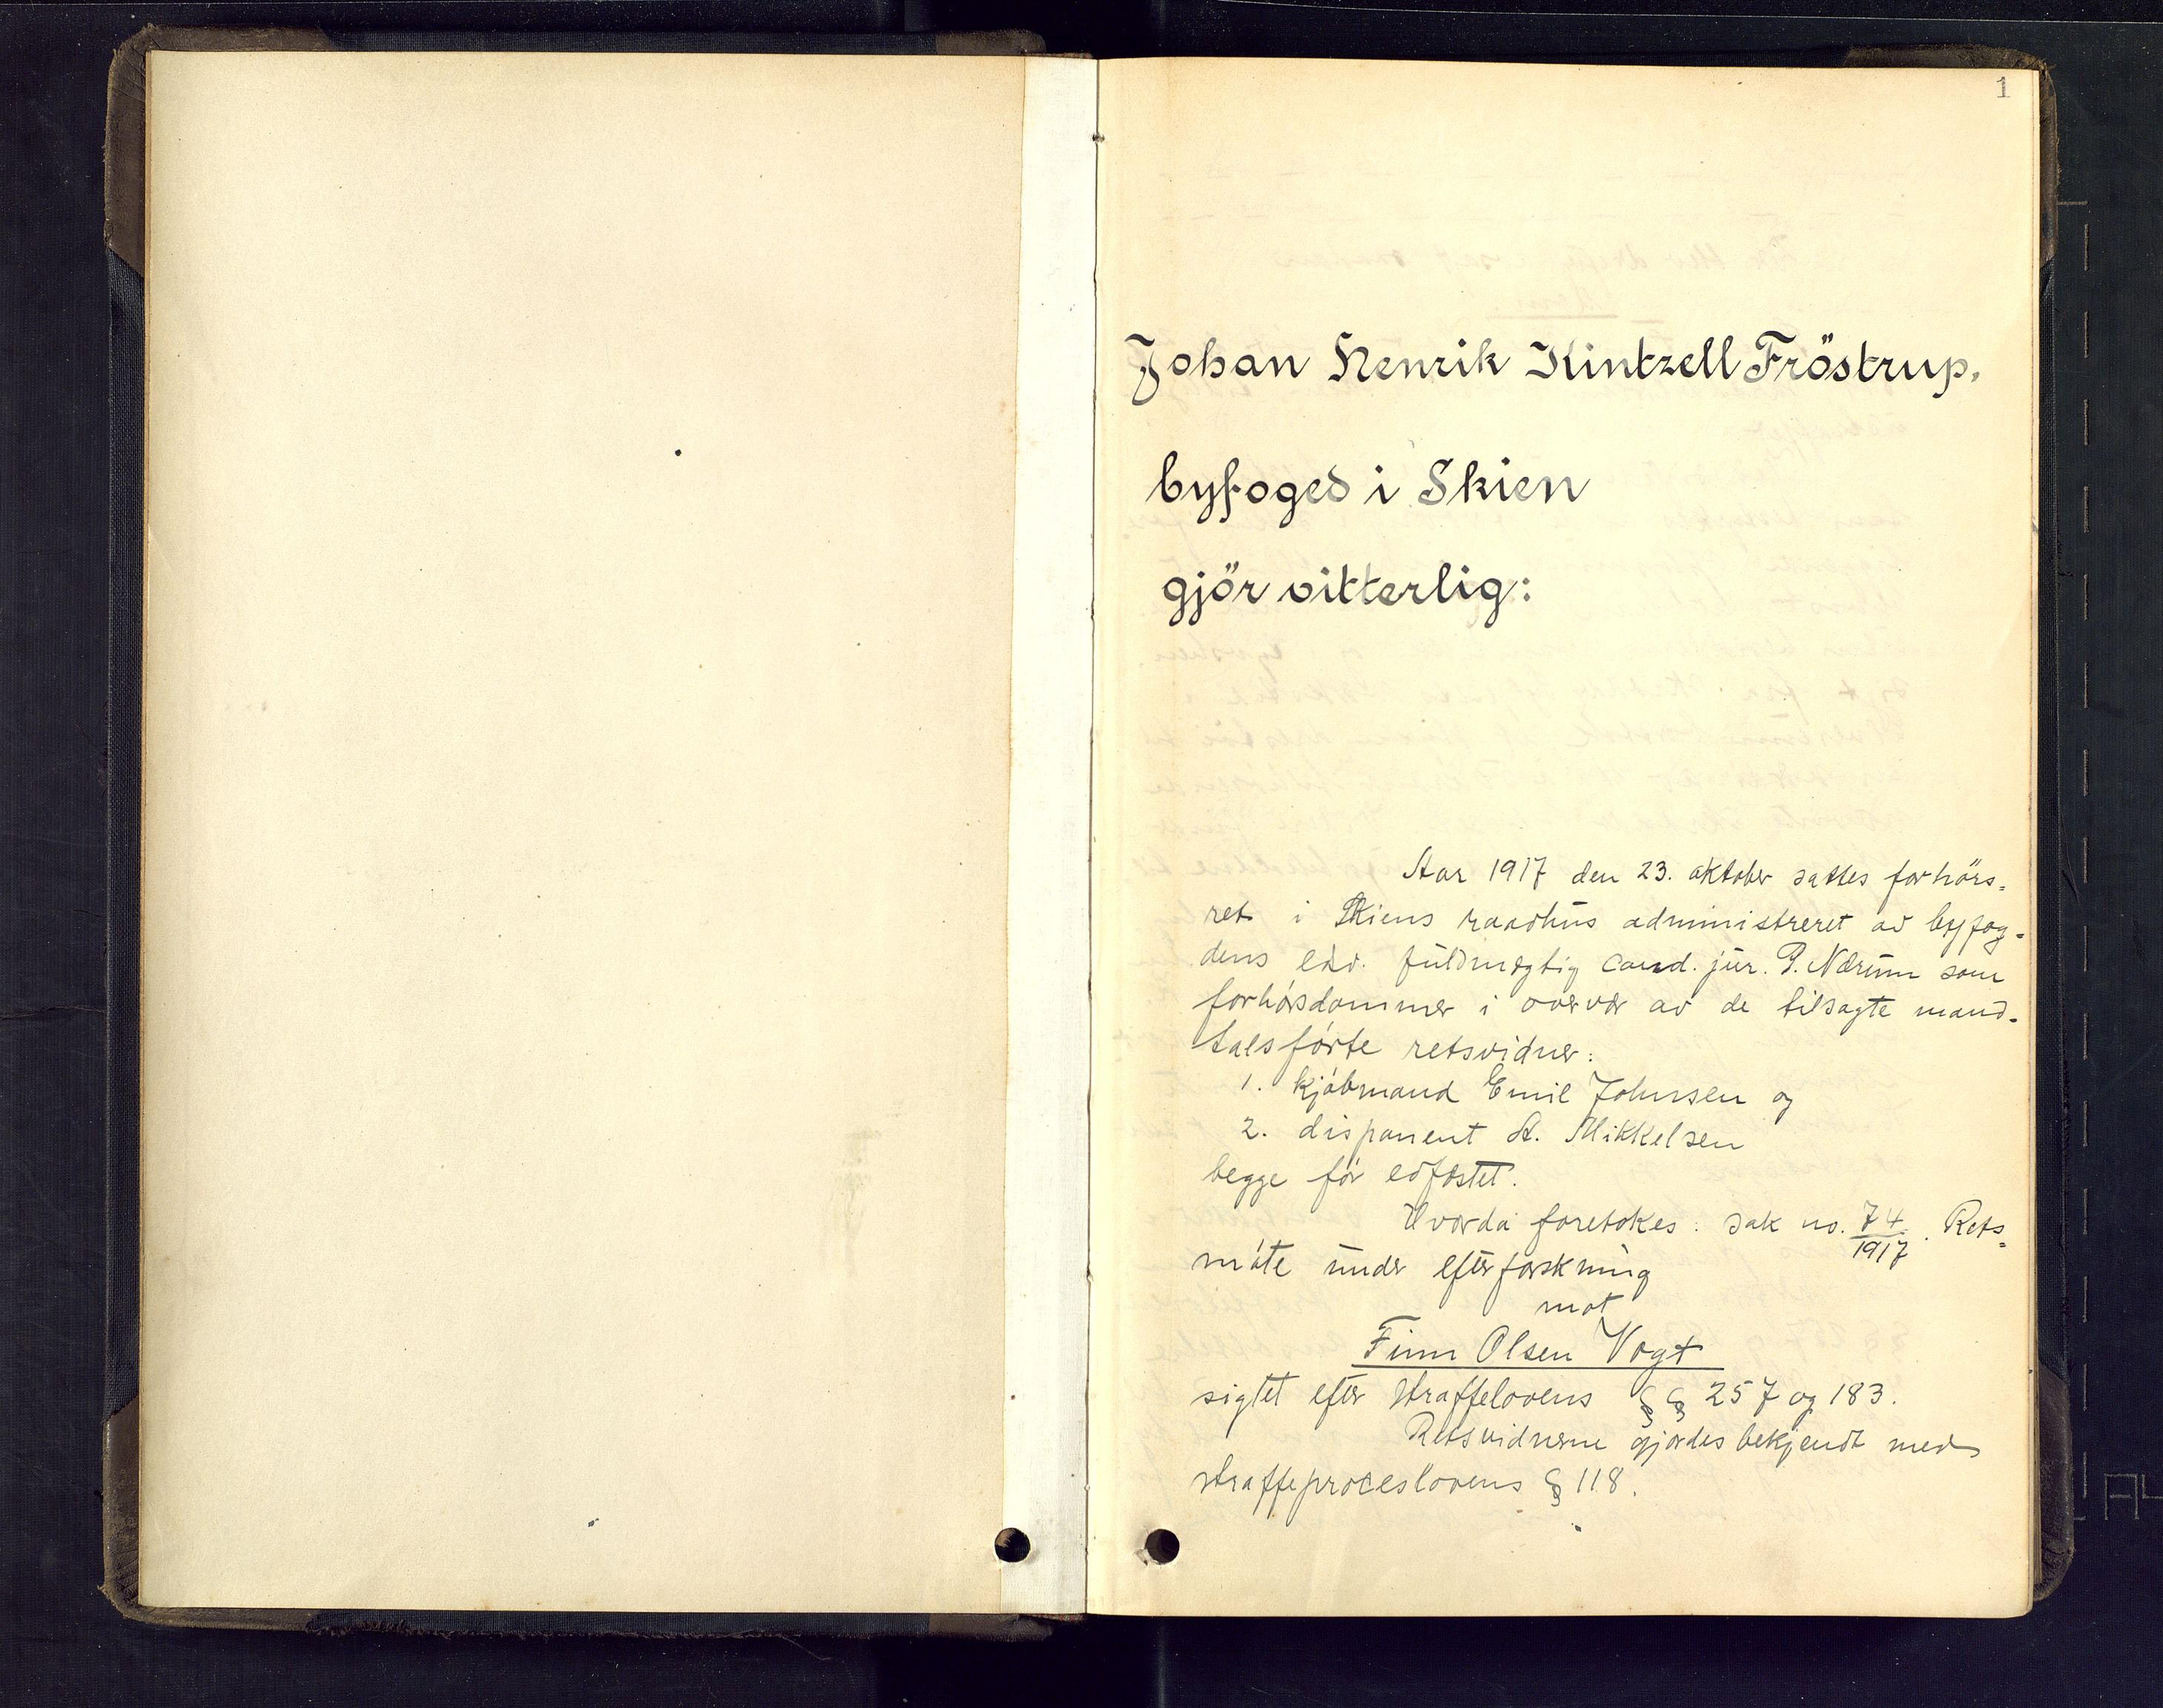 1
Johan Henrik Kintzell Fröstrup,
byfoged i Skien
gjör vitterlig:
Aar 1917 den 23. oktober sattes forhörs=
ret i Skiens raadhus administreret av byfog=
dens edsv. fuldmægtig cand. jur. P. Nærum som
forhörsdommer i overvær av de tilsagte mand=
talsförte retsvidner:
1. kjöbmand Emil Johnsen og
2. disponent A. Mikkelsen
begge för edfæstet.
Hvorda foretokes: sak no. 74/1917. Rets=
möte under efterforskning
mot
Finn Olsen Vogt
sigtet efter straffelovens §§ 257 og 183.
Retsvidnerne gjordes bekjendt med
straffeproceslovens § 118.